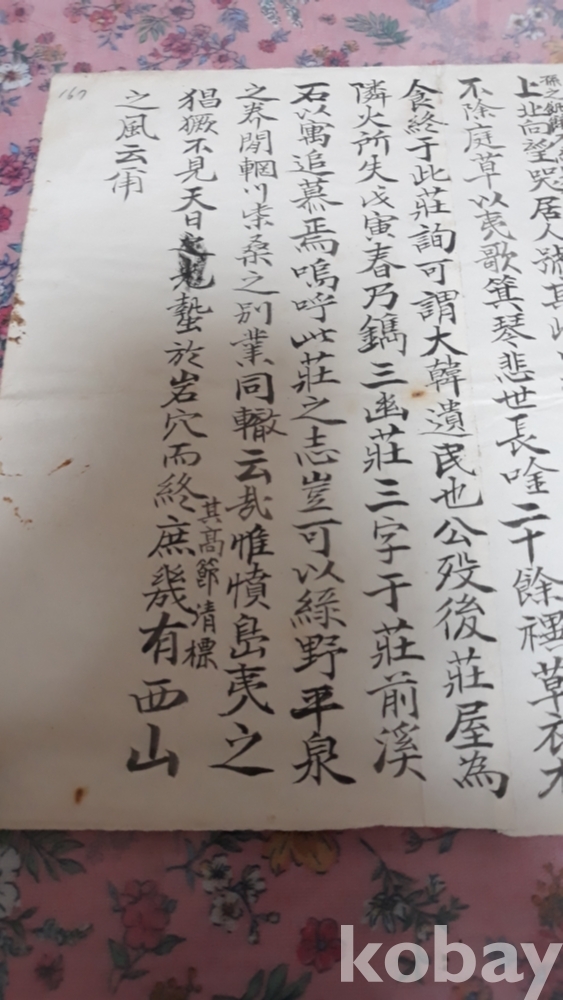 上北向望哭居人號其
不除庭草以夷歌箕琴悲世長唫二十餘禩草衣木
食終于此莊詢可謂大韓遺民也公歿後莊屋為
隣火所失戊寅春乃鐫三幽莊三字于莊前溪
石以寓追慕焉嗚呼此莊之志豈可以綠野平泉
之奔閑輞川柴桑之別業同轍云哉惟憤島夷之
猖獗不見天日蟄於岩穴而終其高節清標庶幾有西山
之風云甫
167
kobay